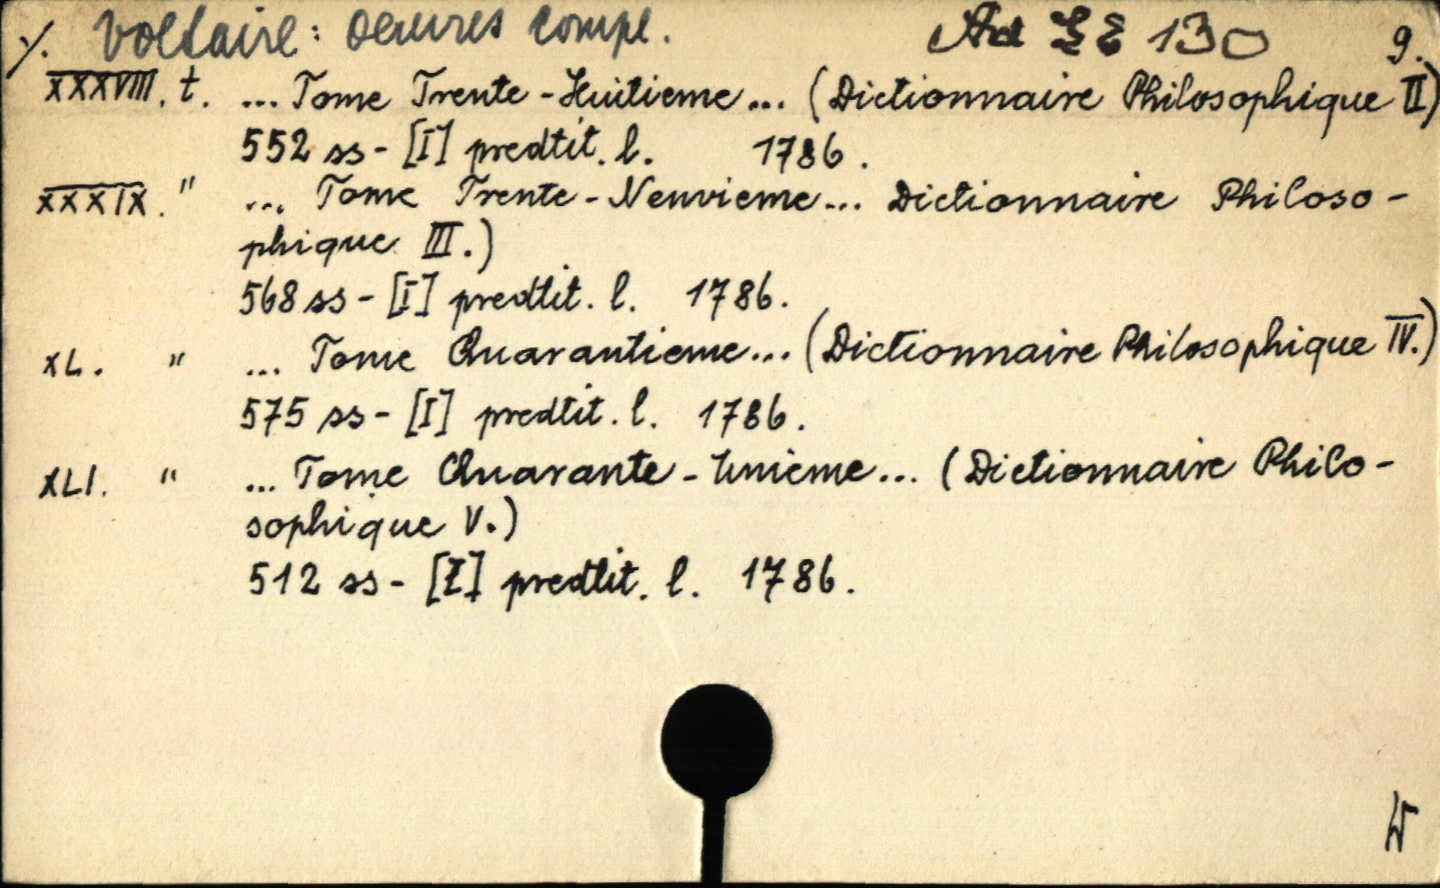 %. Voltaire: Oeuvres compl. Ad LE 130 9.
XXXVIII. t. ... Tome Trente-Huitieme... (Dictionnaire Philosophique II)
552 ss - [I] predtit. l. 1786.
XXXIX. " ... Tome Trente-Neuvieme... Dictionnaire Philoso-
phique III.)
568 ss - [I] predtit. l. 1786.
XL. " ... Tome Quarantieme... (Dictionnaire Philosophique IV.)
575 ss - [I] predtit. l. 1786.
XLI. " ... Tome Quarante-Unieme... (Dictionnaire Philo-
sophique V.)
512 ss - [I] predtit. l. 1786.